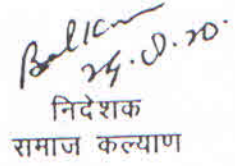 24.8.20.
निदेशक
समाज कल्याण